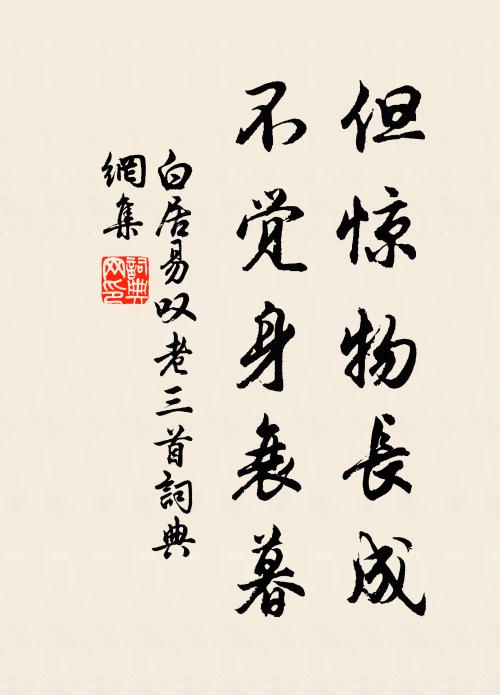 但惊物長成
不觉身衰暮
白居易叹老三首詞典
網集
詞典
网印